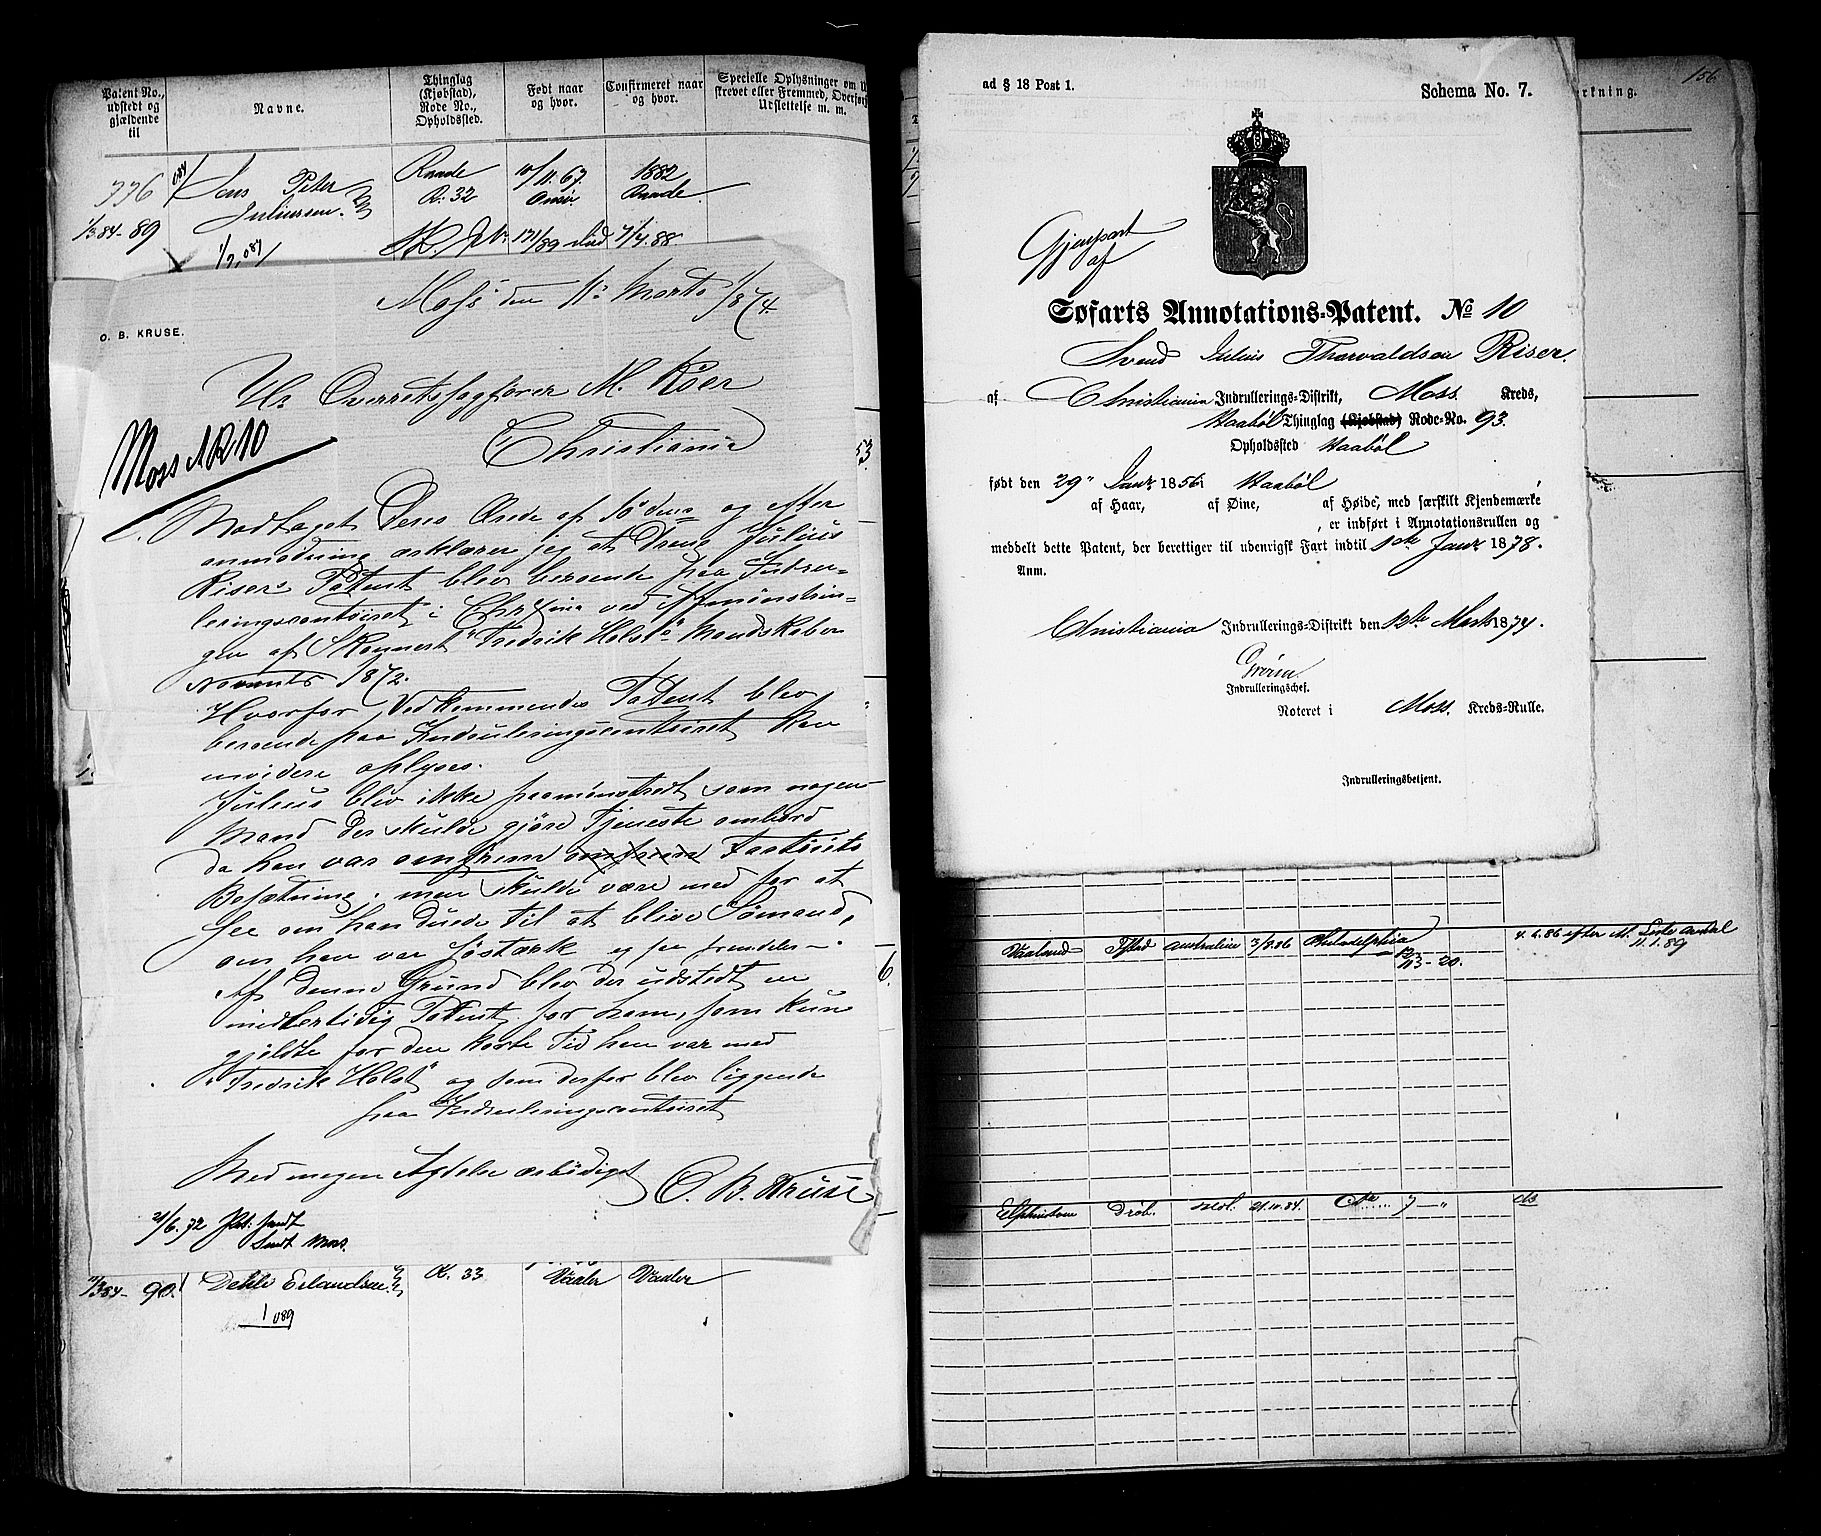 Patent No., udstedt og gjældende til
Navne.
Thinglag (Kjøbstad), Rode No., Opholdssted.
Født naar og hvor.
Confirmeret naar og hvor.
Specielle Oplysninger om
skrevet eller Fremmed, Overfør
Udslettelse m. m.
776
1/3 84-89
Jens Peter
Juliussen.
Raade
R. 32
10/11. 67.
Onsø.
1882
Raade
Moss den 11' Marts 1874.
O. B. KRUSE.
Hr Overretssagfører M. Röer
Christiania
Moss A.R. 10
Modtaget Deres Ærede af 10de ds og efter
anmodning erklærer jeg at Dreng Julius
Risers Patent blev beroende paa Indrul-
leringscontoiret i Chr.ania ved Afmönstrin-
gen af Skonnert "Fredrik Holst" Mandskaber
Novembr 1872.
Hvorfor Vedkommendes Patent blev
beroende paa Indrulleringscontoiret kan
meidere oplyses.
Julius blev ikke paamönstredt som nogen
Mand der skulde gjöre Tjeneste ombord
da han var omfrem omfrem Fartöiets
Besætning, men skulde være med for at
see om han duede til at blive Sömand,
om han var söstærk og saa fremdeles.
Af denne Grund blev der udstedt en
midlertidig Patent for ham, som kun
gjeldte for den korte Tid han var med
"Fredrik Holst" og som derfor blev liggende
paa Indrulleringscontoiret
Med megen Agtelse ærbödigst
O. B. Kruse
21/6. 72
Sendt Moss.
11/3 84-90.
Dehli Erlandsen
R. 33
Vaaler
Vaaler
1 089
53
6.
156
ad § 18 Post 1.
Schema No. 7.
rkning.
Gjenpart
af
Søfarts Annotations-Patent. No 10
Svend Julius Thorvaldsen Riser.
af Christiania Indrullerings-Distrikt, Moss Kreds,
Vaabøl Thinglag (Kjøbstad) Rode-No. 93.
Opholdssted Vaabøl
født den 29' Janr 1856 i Vaabøl
af Haar, af Øine, af Høide, med særskilt Kjendemærke
, er indført i Annotationsrullen og
meddelt dette Patent, der berettiger til udenrigsk Fart indtil 1ste Janr 1878.
Anm.
Christiania Indrullerings-Distrikt den 12te Marts 1874.
Indrulleringschef.
Noteret i Moss. Kreds-Rulle.
Indrulleringsbetjent.
Vaaland Fstad Australien 3/8.86 Philadelphia 12/113-20.
4. 6. 86 efter M. Liste anstal
11.1.89
Elphinstone Drøb. 21.10.84. 7 - "